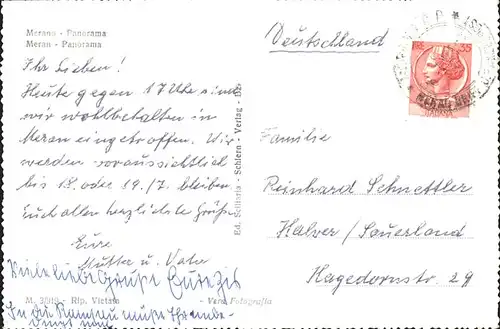 Merano - Panorama
Meran - Panorama
Ihr Lieben!
Heute gegen 17 Uhr sind
wir wohlbehalten in
Meran eingetroffen. Wir
werden voraussichtlich
bis 18. oder 19./7. bleiben.
Euch allen herzlichste Grüße
Eure
Mutter u. Vater
Viele liebe Grüße Eure
M. - Rip. Vietata
- Vera Fotografia
In
Ed. - Schlern - Verlag -
Deutschland
LIRE 35
ITALIANA
MERAN
Familie
Reinhard Schnettler
Halver / Sauerland
Hagedornstr. 29